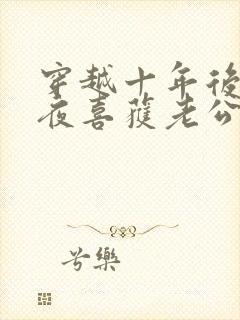 穿越十年後
夜喜獲老公
兮樂